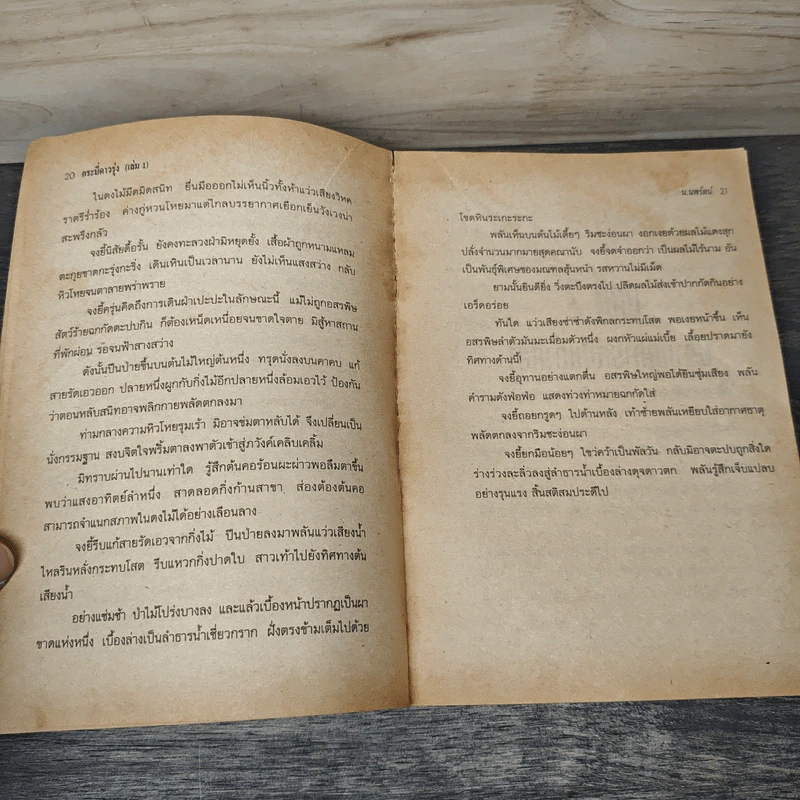 20 กระบี่ดาวรุ่ง (เล่ม 1)
ในดงไม้มืดมิดสนิท ยื่นมือออกไม่เห็นนิ้วทั้งห้าแว่วเสียงวิหค
ราตรีร่ำร้อง ค่างกู่หวนโหยมาแต่ไกลบรรยากาศเยือกเย็นวังเวงน่า
สะพรึงกลัว
จงยี้นิสัยดื้อรั้น ยังคงทะลวงฝ่ามิหยุดยั้ง เสื้อผ้าถูกหนามแหลม
ตะกุยขาดกะรุ่งกะริ่ง เดินเหินเป็นเวลานาน ยังไม่เห็นแสงสว่าง กลับ
หิวโหยจนตาลายพร่าพราย
จงยี้ครุ่นคิดถึงการเดินฝ่าเปะปะในลักษณะนี้ แม้ไม่ถูกอสรพิษ
สัตว์ร้ายฉกกัดตะปบกิน ก็ต้องเหน็ดเหนื่อยจนขาดใจตาย มิสู้หาสถาน
ที่พักผ่อน รอจนฟ้าสางสว่าง
ดังนั้นปีนป่ายขึ้นบนต้นไม้ใหญ่ต้นหนึ่ง ทรุดนั่งลงบนคาคบ แก้
สายรัดเอวออก ปลายหนึ่งผูกกับกิ่งไม้อีกปลายหนึ่งล้อมเอวไว้ ป้องกัน
ว่าตอนหลับสนิทอาจพลิกกายพลัดตกลงมา
ท่ามกลางความหิวโหยรุมเร้า มิอาจข่มตาหลับได้ จึงเปลี่ยนเป็น
นั่งกรรมฐาน สงบจิตใจพริ้มตาลงพาตัวเข้าสู่ภวังค์เคลิบเคลิ้ม
มิทราบผ่านไปนานเท่าใด รู้สึกต้นคอร้อนผะผ่าวพอลืมตาขึ้น
พบว่าแสงอาทิตย์ลำหนึ่ง สาดลอดกิ่งก้านสาขา ส่องต้องต้นคอ
สามารถจำแนกสภาพในดงไม้ได้อย่างเลือนลาง
จงยี้รีบแก้สายรัดเอวจากกิ่งไม้ ปีนป่ายลงมาพลันแว่วเสียงน้ำ
ไหลรินหลั่งกระทบโสต รีบแหวกกิ่งปาดใบ สาวเท้าไปยังทิศทางต้น
เสียงน้ำ
อย่างแช่มช้า ป่าไม้โปร่งบางลง และแล้วเบื้องหน้าปรากฏเป็นผา
ขาดแห่งหนึ่ง เบื้องล่างเป็นลำธารน้ำเชี่ยวกราก ฝั่งตรงข้ามเต็มไปด้วย
น.นพรัตน์ 21
โขดหินระเกะระกะ
พลันเห็นบนต้นไม้เตี้ยๆ ริมชะง่อนผา งอกเงยด้วยผลไม้แดงสุก
ปลั่งจำนวนมากมายสุดคณานับ จงยี้จดจำออกว่า เป็นผลไม้ไร้นาม อัน
เป็นพันธุ์พิเศษของมณฑลฮุ้นหนำ รสหวานไม่มีเม็ด
ยามนั้นยินดียิ่ง วิ่งตะบึงตรงไป ปลิดผลไม้ส่งเข้าปากกัดกินอย่าง
เอร็ดอร่อย
ทันใด แว่วเสียงซ่าซ่าดังพิกลกระทบโสต พอเงยหน้าขึ้น เห็น
อสรพิษลำตัวมันมะเมื่อมตัวหนึ่ง ผงกหัวแผ่แม่เบี้ย เลื้อยปราดมายัง
ทิศทางด้านนี้!
จงยี้อุทานอย่างแตกตื่น อสรพิษใหญ่พอได้ยินซุ่มเสียง พลัน
คำรามดังฟ่อฟ่อ แสดงท่วงท่าหมายฉกกัดใส่
จงยี้ถอยกรูดๆ ไปด้านหลัง เท้าซ้ายพลันเหยียบใส่อากาศธาตุ
พลัดตกลงจากริมชะง่อนผา
จงยี้ยกมือน้อยๆ ไขว่คว้าเป็นพัลวัน กลับมิอาจตะปบถูกสิ่งใด
ร่างร่วงละลิ่วลงสู่ลำธารน้ำเบื้องล่างดุจดาวตก พลันรู้สึกเจ็บแปลบ
อย่างรุนแรง สิ้นสติสมประดีไป